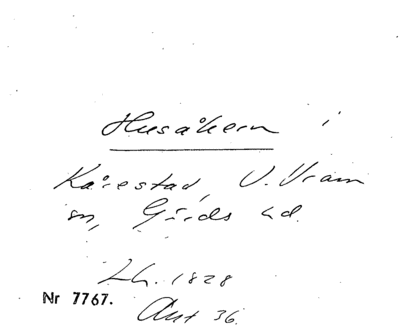 Husåkern i
Kårestad, V. Vram
sn, Gärds hd.
Lh. 1828
Nr 7767.
Akt 36.